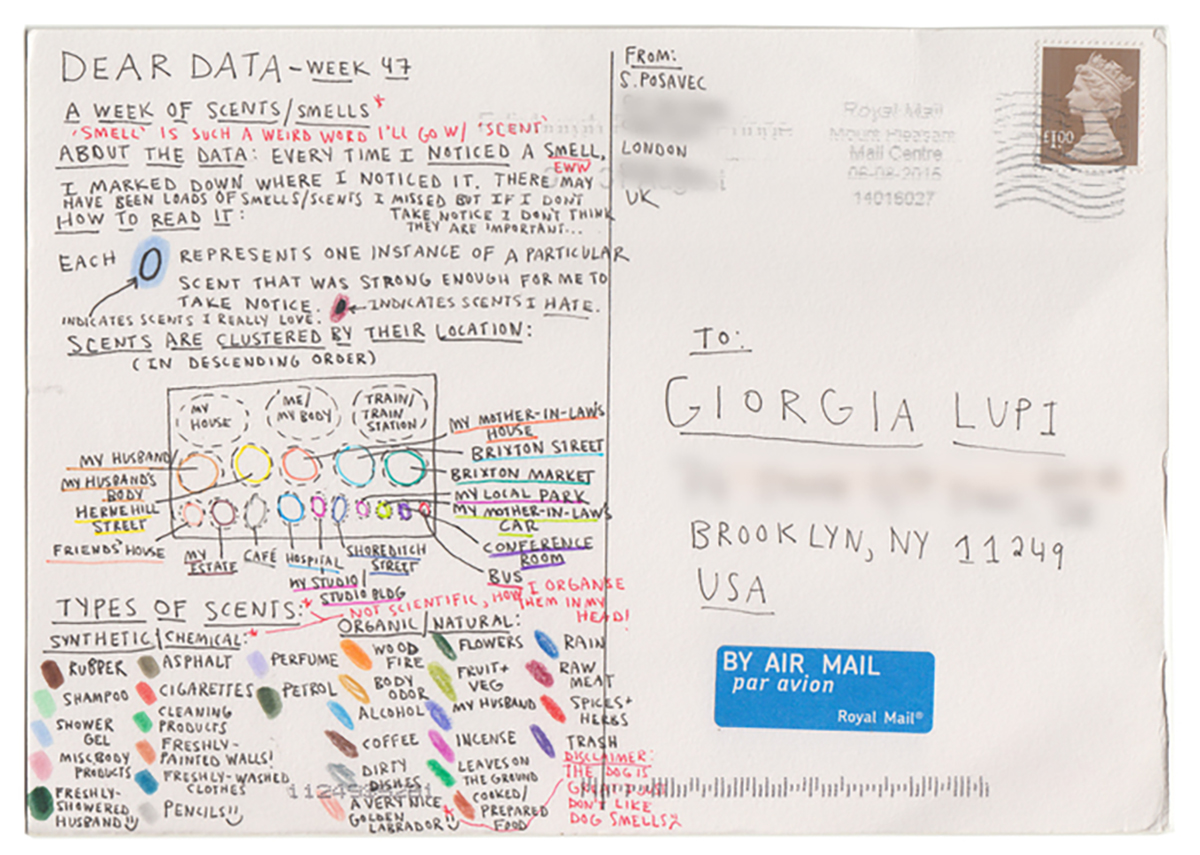 DEAR DATA - WEEK 47
A WEEK OF SCENTS/SMELLS*
'SMELL' IS SUCH A WEIRD WORD I'LL GO W/ 'SCENT'
ABOUT THE DATA: EVERY TIME I NOTICED A SMELL,
EWW
I MARKED DOWN WHERE I NOTICED IT. THERE MAY
HAVE BEEN LOADS OF SMELLS/SCENTS I MISSED BUT IF I DON'T
TAKE NOTICE I DON'T THINK
THEY ARE IMPORTANT...
HOW TO READ IT:
EACH REPRESENTS ONE INSTANCE OF A PARTICULAR
SCENT THAT WAS STRONG ENOUGH FOR ME TO
TAKE NOTICE.
INDICATES SCENTS I HATE.
INDICATES SCENTS I REALLY LOVE.
SCENTS ARE CLUSTERED BY THEIR LOCATION:
(IN DESCENDING ORDER)
MY
HOUSE
ME/
MY BODY
TRAIN/
TRAIN
STATION
MY HUSBAND/
MY HUSBAND'S
BODY
HERNE HILL
STREET
FRIENDS' HOUSE
MY
ESTATE
CAFÉ
HOSPITAL
MY STUDIO/
STUDIO BLDG
SHOREDITCH
STREET
MY MOTHER-IN-LAW'S
HOUSE
BRIXTON STREET
BRIXTON MARKET
MY LOCAL PARK
MY MOTHER-IN-LAW'S
CAR
CONFERENCE
ROOM
BUS
TYPES OF SCENTS:*
NOT SCIENTIFIC, HOW I ORGANSE
THEM IN MY
HEAD!
SYNTHETIC/CHEMICAL:*
RUBBER
SHAMPOO
SHOWER
GEL
MISC. BODY
PRODUCTS
FRESHLY-
SHOWERED
HUSBAND
ASPHALT
CIGARETTES
CLEANING
PRODUCTS
FRESHLY-
PAINTED WALLS!
FRESHLY-WASHED
CLOTHES
PENCILS!!
PERFUME
PETROL
ORGANIC/NATURAL:
WOOD
FIRE
BODY
ODOR
ALCOHOL
COFFEE
DIRTY
DISHES
A VERY NICE
GOLDEN
LABRADOR
FLOWERS
FRUIT+
VEG
MY HUSBAND
INCENSE
LEAVES ON
THE GROUND
COOKED/
PREPARED
FOOD
RAIN
RAW
MEAT
SPICES+
HERBS
TRASH
DISCLAIMER:
THE DOG IS
GREAT I JUST
DON'T LIKE
DOG SMELLS
FROM:
S. POSAVEC
LONDON
UK
Royal Mail
Mount Pleasant
Mail Centre
06-08-2015
14016027
£1.00
TO:
GIORGIA LUPI
BROOKLYN, NY 11249
USA
BY AIR MAIL
par avion
Royal Mail®